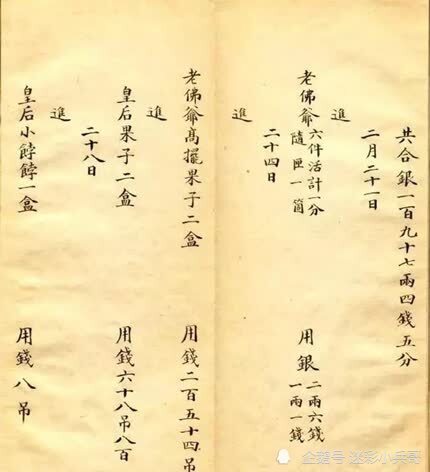 共合銀一百九十七兩四錢五分
二月二十一日
進
老佛爺六件活計一分隨匣一箇 用銀二兩六錢一兩一錢
二十四日
進
老佛爺高擺果子二盒 用錢二百五十四吊
進
皇后果子二盒 用錢六十八吊八百
二十八日
進
皇后小餑餑一盒 用錢八吊
企鹅号 迷彩小兵哥